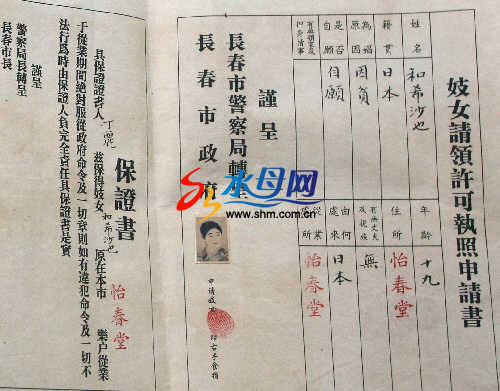 妓女請領許可執照申請書
姓名 和希沙也
年齡 十九
籍貫 日本
住所 怡春堂
為娼原因 因貧
有無丈夫及親族 無
是否自願 自願
由何處來 日本
有無領家及扣身情事
從業處所 怡春堂
謹呈
長春市警察局轉呈
長春市政府
申請
印右手食指
保證書
具保證書人 丁麗 茲保得妓女 和希沙也 原在本市 怡春堂 樂户從業
于從業期間絕對服從政府命令及一切章則如有違犯命令及一切不
法行為時由保證人負完全責任具保證書是實
謹呈
警察局長轉呈
長春市長
水母网
www.shm.com.cn